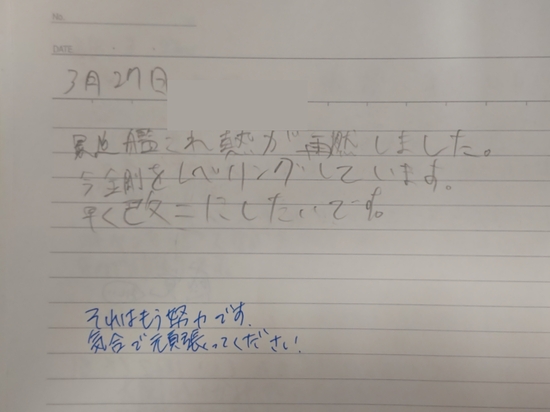 No.
DATE
3月27日
最近艦これ熱が再燃しました。
今金剛をレベリングしています。
早く改二にしたいです。
それはもう努力です.
気合で頑張ってください!